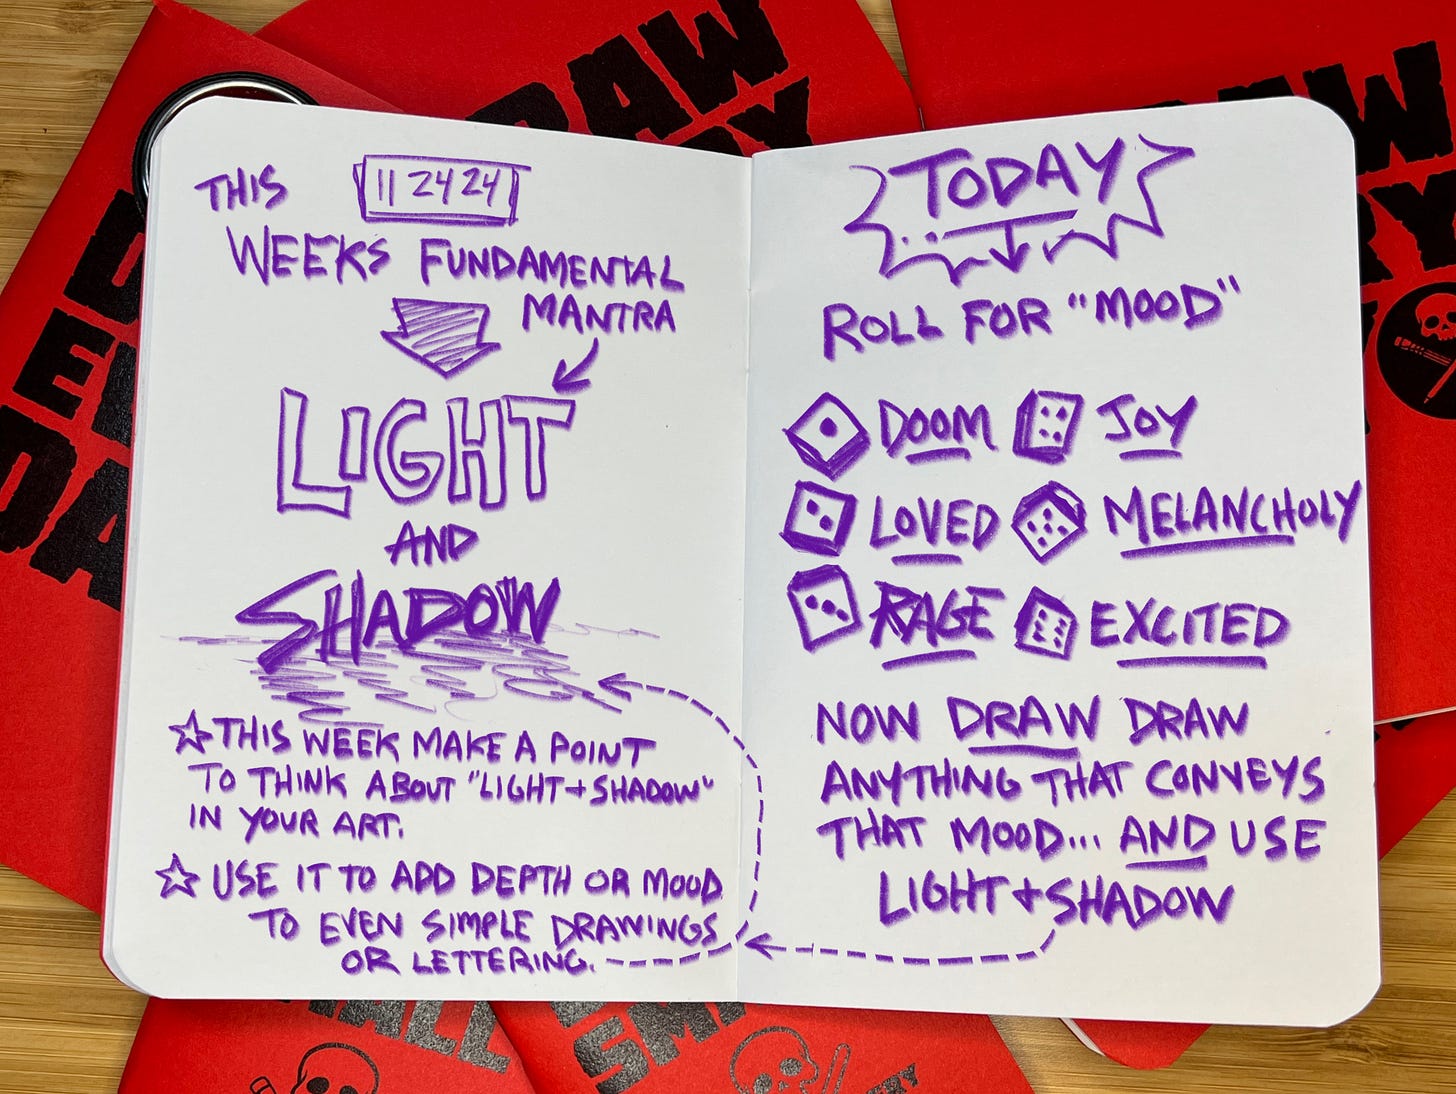 THIS
11 24 24
WEEKS FUNDAMENTAL
MANTRA
LIGHT
AND
SHADOW
☆ THIS WEEK MAKE A POINT
TO THINK ABOUT "LIGHT + SHADOW"
IN YOUR ART.
☆ USE IT TO ADD DEPTH OR MOOD
TO EVEN SIMPLE DRAWINGS
OR LETTERING.
TODAY
ROLL FOR "MOOD"
DOOM JOY
LOVED MELANCHOLY
RAGE EXCITED
NOW DRAW DRAW
ANYTHING THAT CONVEYS
THAT MOOD... AND USE
LIGHT + SHADOW